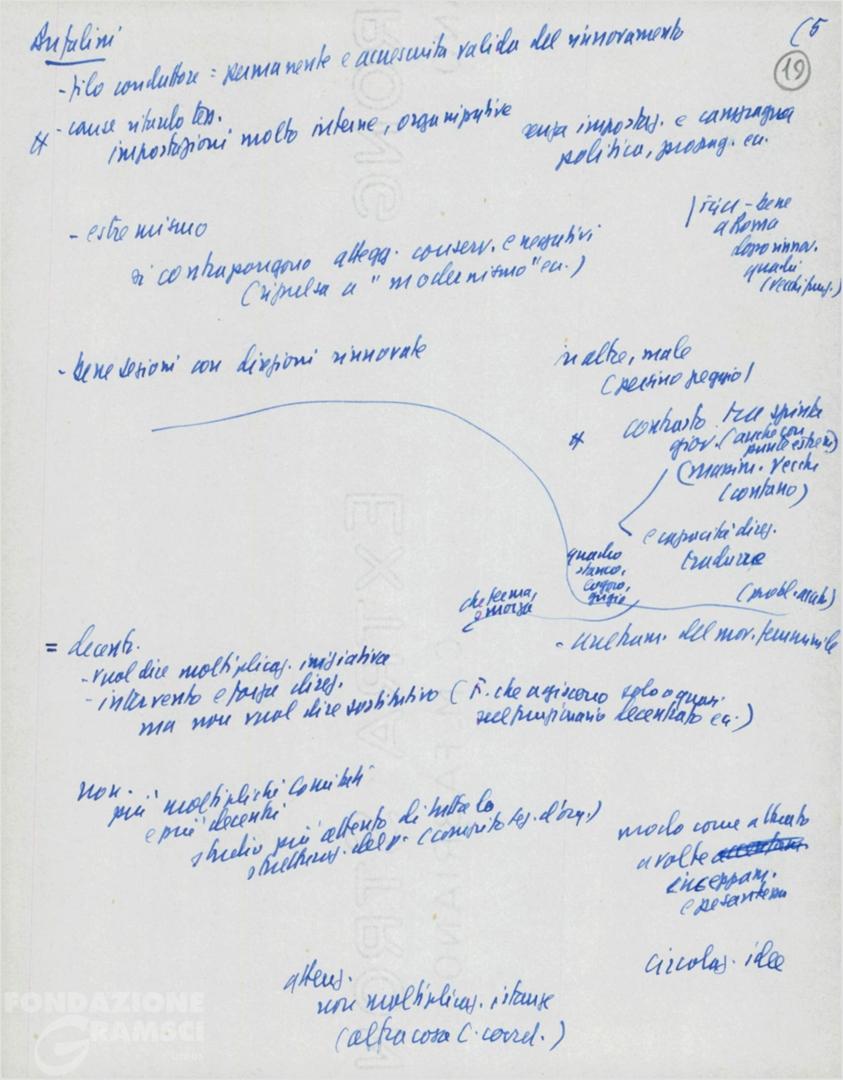 (5
19
- filo conduttore = permanente e accresciuta valida del rinnovamento
- cause ritardo tess.
impostazioni molto interne, organizzative
senza impostaz. e campagna
politica, propag. ecc.
- estremismo
si contrappongono attegg. conserv. e negativi
(ripulsa a "modernismo" ecc.)
bene
a Roma
dopo rinnov.
quadri
(vecchi funz.)
- bene sezioni con direzioni rinnovate
in altre, male
(persino peggio)
contrasto tra spinta
giov. (anche con
punte estrem.)
(massim. vecchi
(contano)
e capacità direz.
tradurre
quadro
stanco,
logoro,
grigio
che ferma,
smorza
- del mov. femminile
= decentr.
- vuol dire moltiplicaz. iniziativa
- intervento e forza direz.
ma non vuol dire sostitutivo (F. che agiscono solo o quasi
sul funzionario decentrato ecc.)
non
più moltiplichi comitati
e più decentri
studio più attento di tutta la
strutturaz. del p. (compito sez. d'org.)
modo come attuato
a volte
inceppam.
e pesantezza
circolaz. idee
attenz.
non moltiplicaz. istanze
(altra cosa C. coord.)
FONDAZIONE
GRAMSCI
ONLUS
EXTRA STRONG